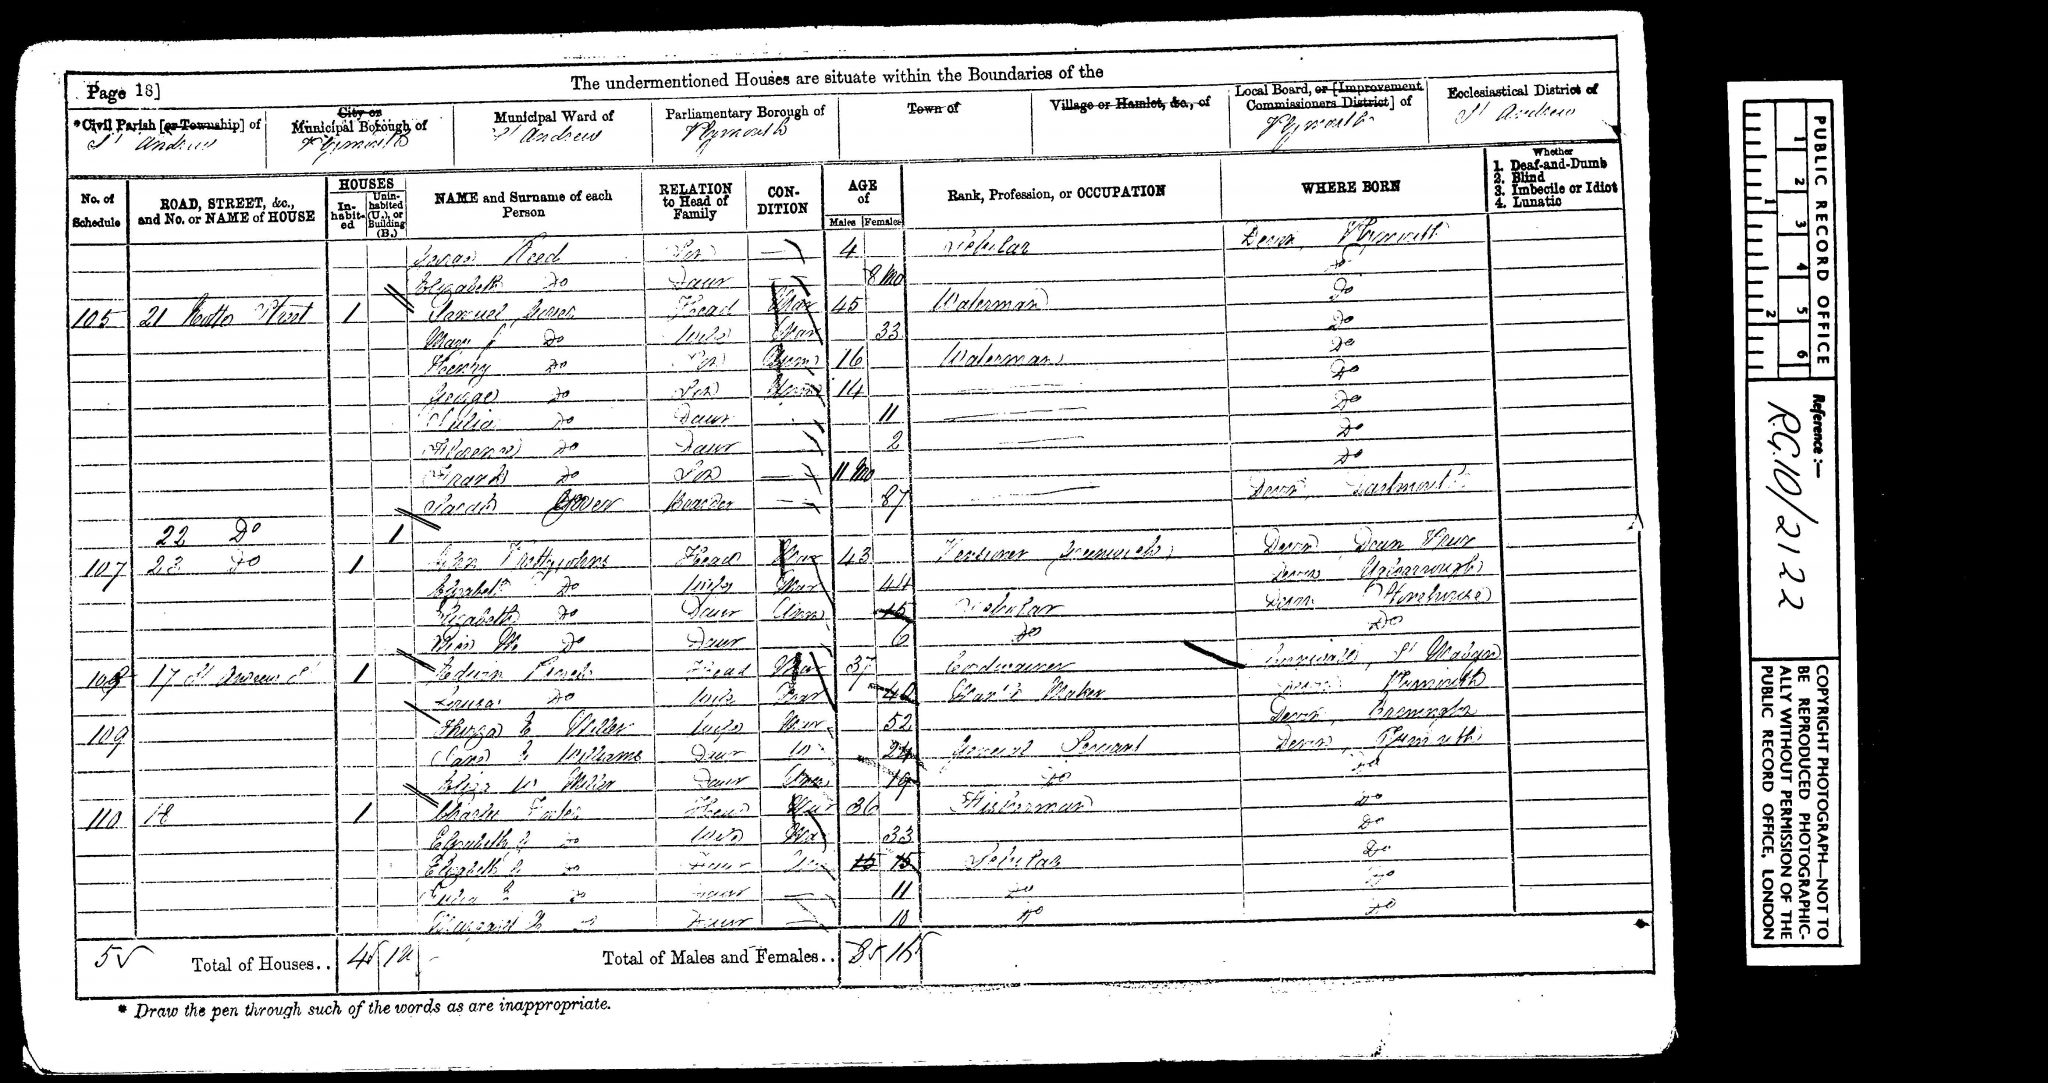 Page 18]
The undermentioned Houses are situate within the Boundaries of the
*Civil Parish [or Township] of
City or Municipal Borough of
Municipal Ward of
Parliamentary Borough of
Town of
Village or Hamlet, &c., of
Local Board, or [Improvement Commissioners District] of
Ecclesiastical District of
St Andrew
Plymouth
St Andrew
Plymouth
Plymouth
St Andrew
No. of Schedule
ROAD, STREET, &c., and No. or NAME of HOUSE
HOUSES
Inhabited
Uninhabited (U.), or Building (B.)
NAME and Surname of each Person
RELATION to Head of Family
CONDITION
AGE of
Males
Females
Rank, Profession, or OCCUPATION
WHERE BORN
Whether
1. Deaf-and-Dumb
2. Blind
3. Imbecile or Idiot
4. Lunatic
Reed Son 4 Scholar Devon, Plymouth
Elizabeth Do Daur 8 Mo Do
105 21 Street 1 Samuel Head Mar 45 Waterman Do
Mary Do Wife Mar 33 Do
Henry Do Son Unm 16 Waterman Do
George Do Son Unm 14 Do
Julia Do Daur 11 Do
Do Daur 2 Do
Frank Do Son 11 Mo Do
Sarah Boarder 87 Devon
22 Do 1
107 23 Do 1 John Head Mar 43 Pensioner Greenwich Devon
Elizabeth Do Wife Mar 44 Devon Ugborough
Elizabeth Do Daur Unm 15 Scholar Devon Stonehouse
Do Daur 6 Do Do
108 17 St Andrew St 1 Edwin Head Mar 37 Cordwainer Cornwall, St
Louisa Do Wife Mar 40 Maker Devon Plymouth
109 Thirza E Miller Wife Mar 52 Devon,
Jane E Williams Daur W 24 General Servant Devon, Plymouth
Eliza W Miller Daur Unm 19 Do Do
110 18 1 Charles Head Mar 36 Fisherman Do
Elizabeth Do Wife Mar 33 Do
Elizabeth Do Daur Unm 15 15 Scholar Do
Julia E Do Daur 11 Do Do
Margaret Do Daur 10 Do Do
5 Total of Houses.. 4 1u Total of Males and Females.. 8 16
* Draw the pen through such of the words as are inappropriate.
PUBLIC RECORD OFFICE
1 2 3 4 5 6
1 2
Reference :—
R.G. 10/2122
COPYRIGHT PHOTOGRAPH—NOT TO
BE REPRODUCED PHOTOGRAPHIC-
ALLY WITHOUT PERMISSION OF THE
PUBLIC RECORD OFFICE, LONDON